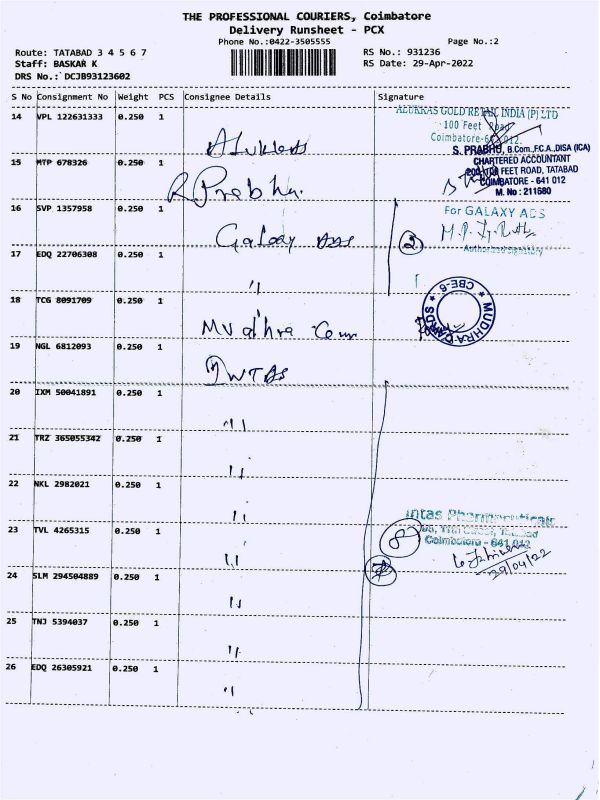 THE PROFESSIONAL COURIERS, Coimbatore
Delivery Runsheet - PCX
Phone No.:0422-3505555 Page No.:2
Route: TATABAD 3 4 5 6 7 RS No.: 931236
Staff: BASKAR K RS Date: 29-Apr-2022
DRS No.: DCJB93123602
S No Consignment No Weight PCS Consignee Details Signature
14 VPL 122631333 0.250 1 ALUKKAS GOLD RETAIL INDIA (P) LTD
100 Feet Road
Coimbatore-641 012.
S. PRABHU, B.Com.,F.C.A.,DISA (ICA)
CHARTERED ACCOUNTANT
15 MTP 678326 0.250 1 R Prabhu. FEET ROAD, TATABAD
COIMBATORE - 641 012
M. No : 211680
16 SVP 1357958 0.250 1 Galaxy Ads 2 For GALAXY ADS
Authorised Signatory
17 EDQ 22706308 0.250 1 "
18 TCG 8091709 0.250 1 MUDHRA CARDS * CBE-6 *
19 NGL 6812093 0.250 1
20 IXM 50041891 0.250 1 "
21 TRZ 365055342 0.250 1 "
22 NKL 2982021 0.250 1 "
Intas Pharmaceuticals
23 TVL 4265315 0.250 1 " 8 Tatabad
Coimbatore - 641 012
29/04/22
24 SLM 294504889 0.250 1 "
25 TNJ 5394037 0.250 1 "
26 EDQ 26305921 0.250 1 "